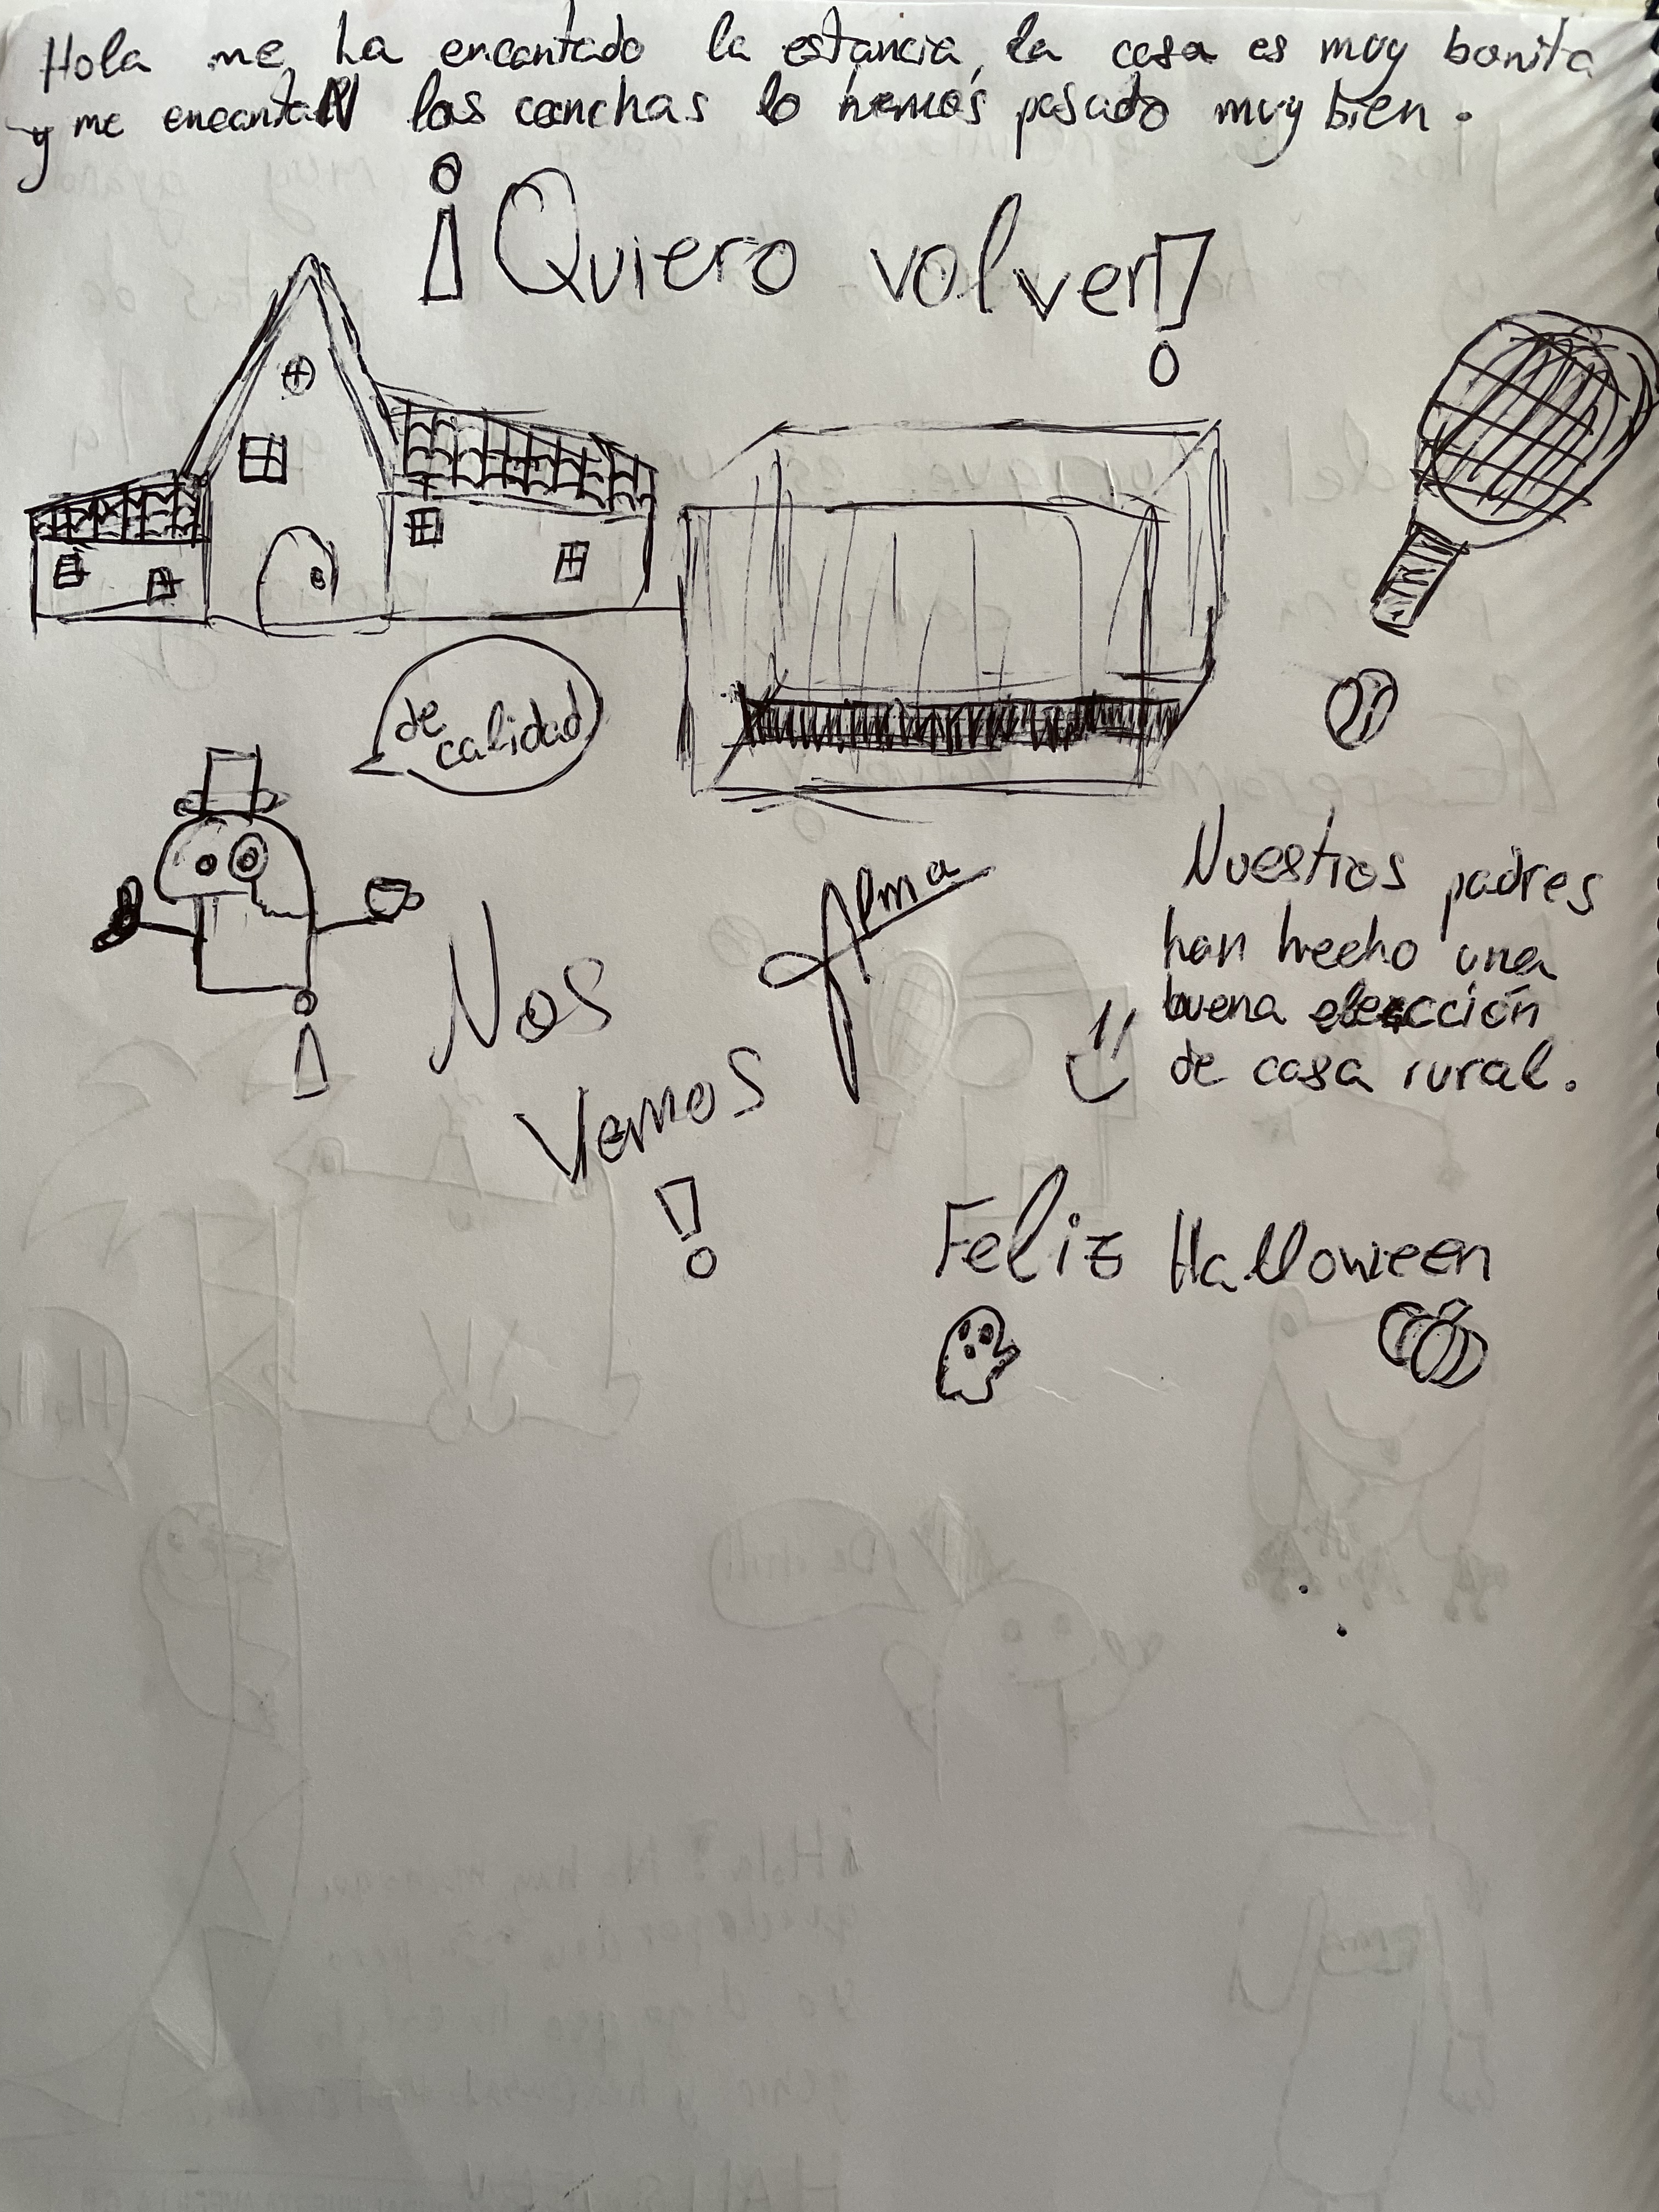 Hola me ha encantado la estancia, la casa es muy bonita
y me encantaN las canchas lo hemos pasado muy bien.
¡Quiero volver!
de
calidad
Alma
Nuestros padres
han hecho una
buena elección
de casa rural.
¡Nos
Vemos
!
Feliz Halloween